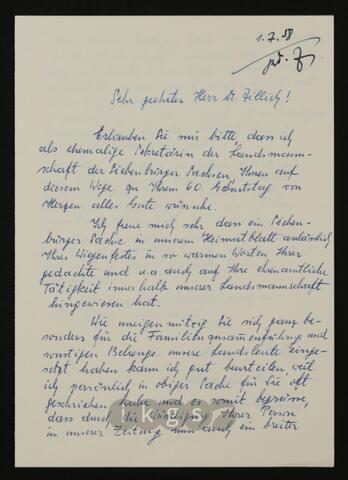 1.7.58
Sehr geehrter Herr Dr. Zillich!
Erlauben Sie mir bitte, dass ich
als ehemalige Sekretärin der Landsmann-
schaft der Siebenbürger Sachsen, Ihnen auf
diesem Wege zu Ihrem 60. Geburtstag von
Herzen alles Gute wünsche.
Ich freue mich sehr dass ein Sieben-
bürger Sachse in unserem Heimatblatt anlässlich
Ihres Wiegenfestes in so warmen Worten Ihrer
gedachte und u.a. auch auf Ihre ehrenamtliche
Tätigkeit innerhalb unserer Landsmannschaft
hingewiesen hat.
Wie uneigennützig Sie sich ganz be-
sonders für die Familienzusammenführung und
sonstigen Belange unserer Landsleute einge-
setzt haben kann ich gut beurteilen, weil
ich persönlich in obiger Sache für Sie oft
geschrieben habe und es somit begrüsse,
dass durch die Würdigung Ihrer Person
in unserer Zeitung nun auch ein breiter
ikgs